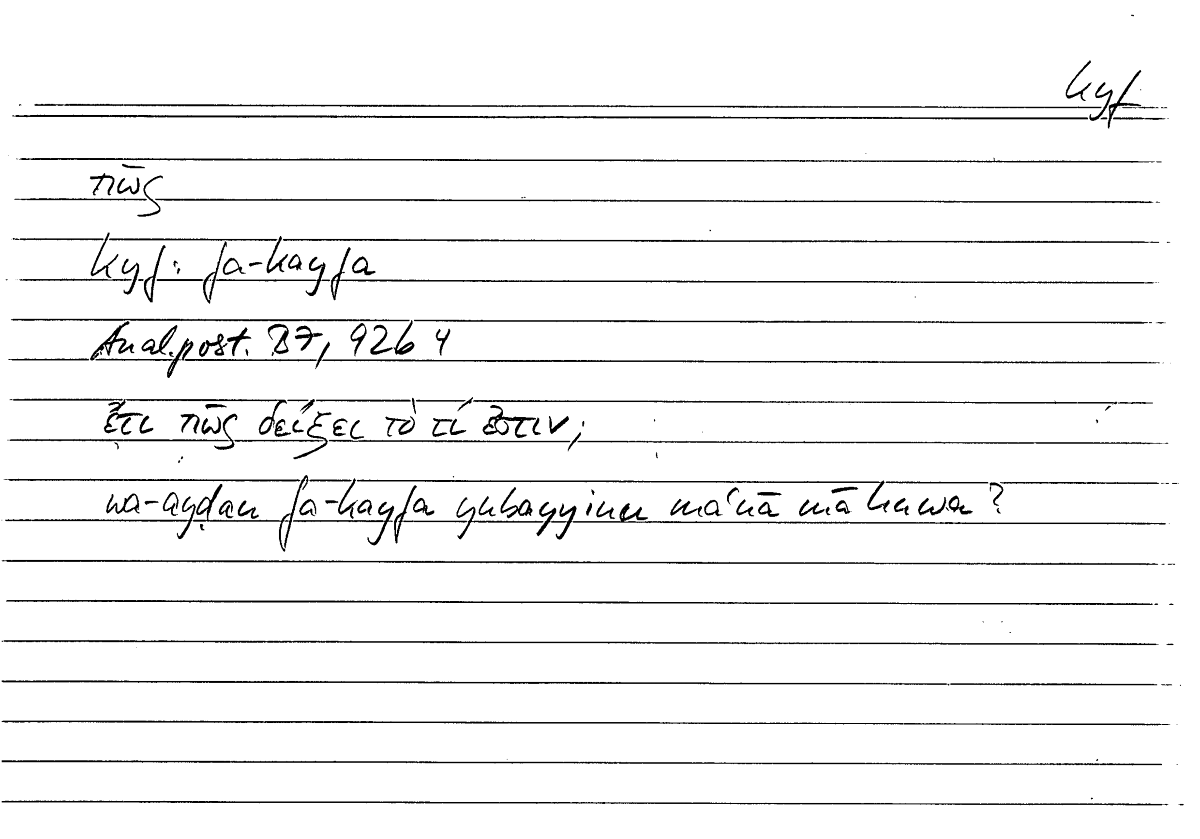 kyf
πῶς
kyf: fa-kayfa
Anal.post. B7, 92b 4
ἔτι πῶς δείξει τὸ τί ἐστιν;
wa-ayḍan fa-kayfa yubayyinu maʿnā mā huwa?